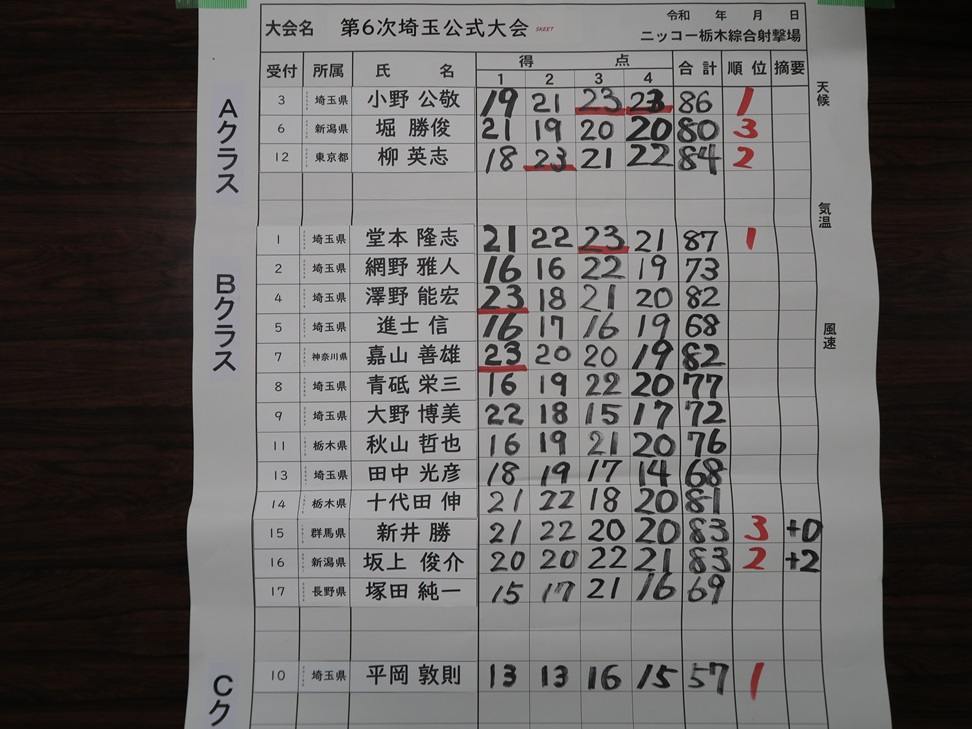 大会名 第6次埼玉公式大会 SKEET 令和 年 月 日
ニッコー栃木綜合射撃場
受付 所属 氏 名 得 点 合計 順位 摘要
1 2 3 4
Aクラス
3 埼玉県 小野 公敬 19 21 23 23 86 1
6 新潟県 堀 勝俊 21 19 20 20 80 3
12 東京都 柳 英志 18 23 21 22 84 2
天候
気温
Bクラス
1 埼玉県 堂本 隆志 21 22 23 21 87 1
2 埼玉県 網野 雅人 16 16 22 19 73
4 埼玉県 澤野 能宏 23 18 21 20 82
5 埼玉県 進士 信 16 17 16 19 68
7 神奈川県 嘉山 善雄 23 20 20 19 82
8 埼玉県 青砥 栄三 16 19 22 20 77
9 埼玉県 大野 博美 22 18 15 17 72
11 栃木県 秋山 哲也 16 19 21 20 76
13 埼玉県 田中 光彦 18 19 17 14 68
14 栃木県 十代田 伸 21 22 18 20 81
15 群馬県 新井 勝 21 22 20 20 83 3 +0
16 新潟県 坂上 俊介 20 20 22 21 83 2 +2
17 長野県 塚田 純一 15 17 21 16 69
風速
Cク
10 埼玉県 平岡 敦則 13 13 16 15 57 1